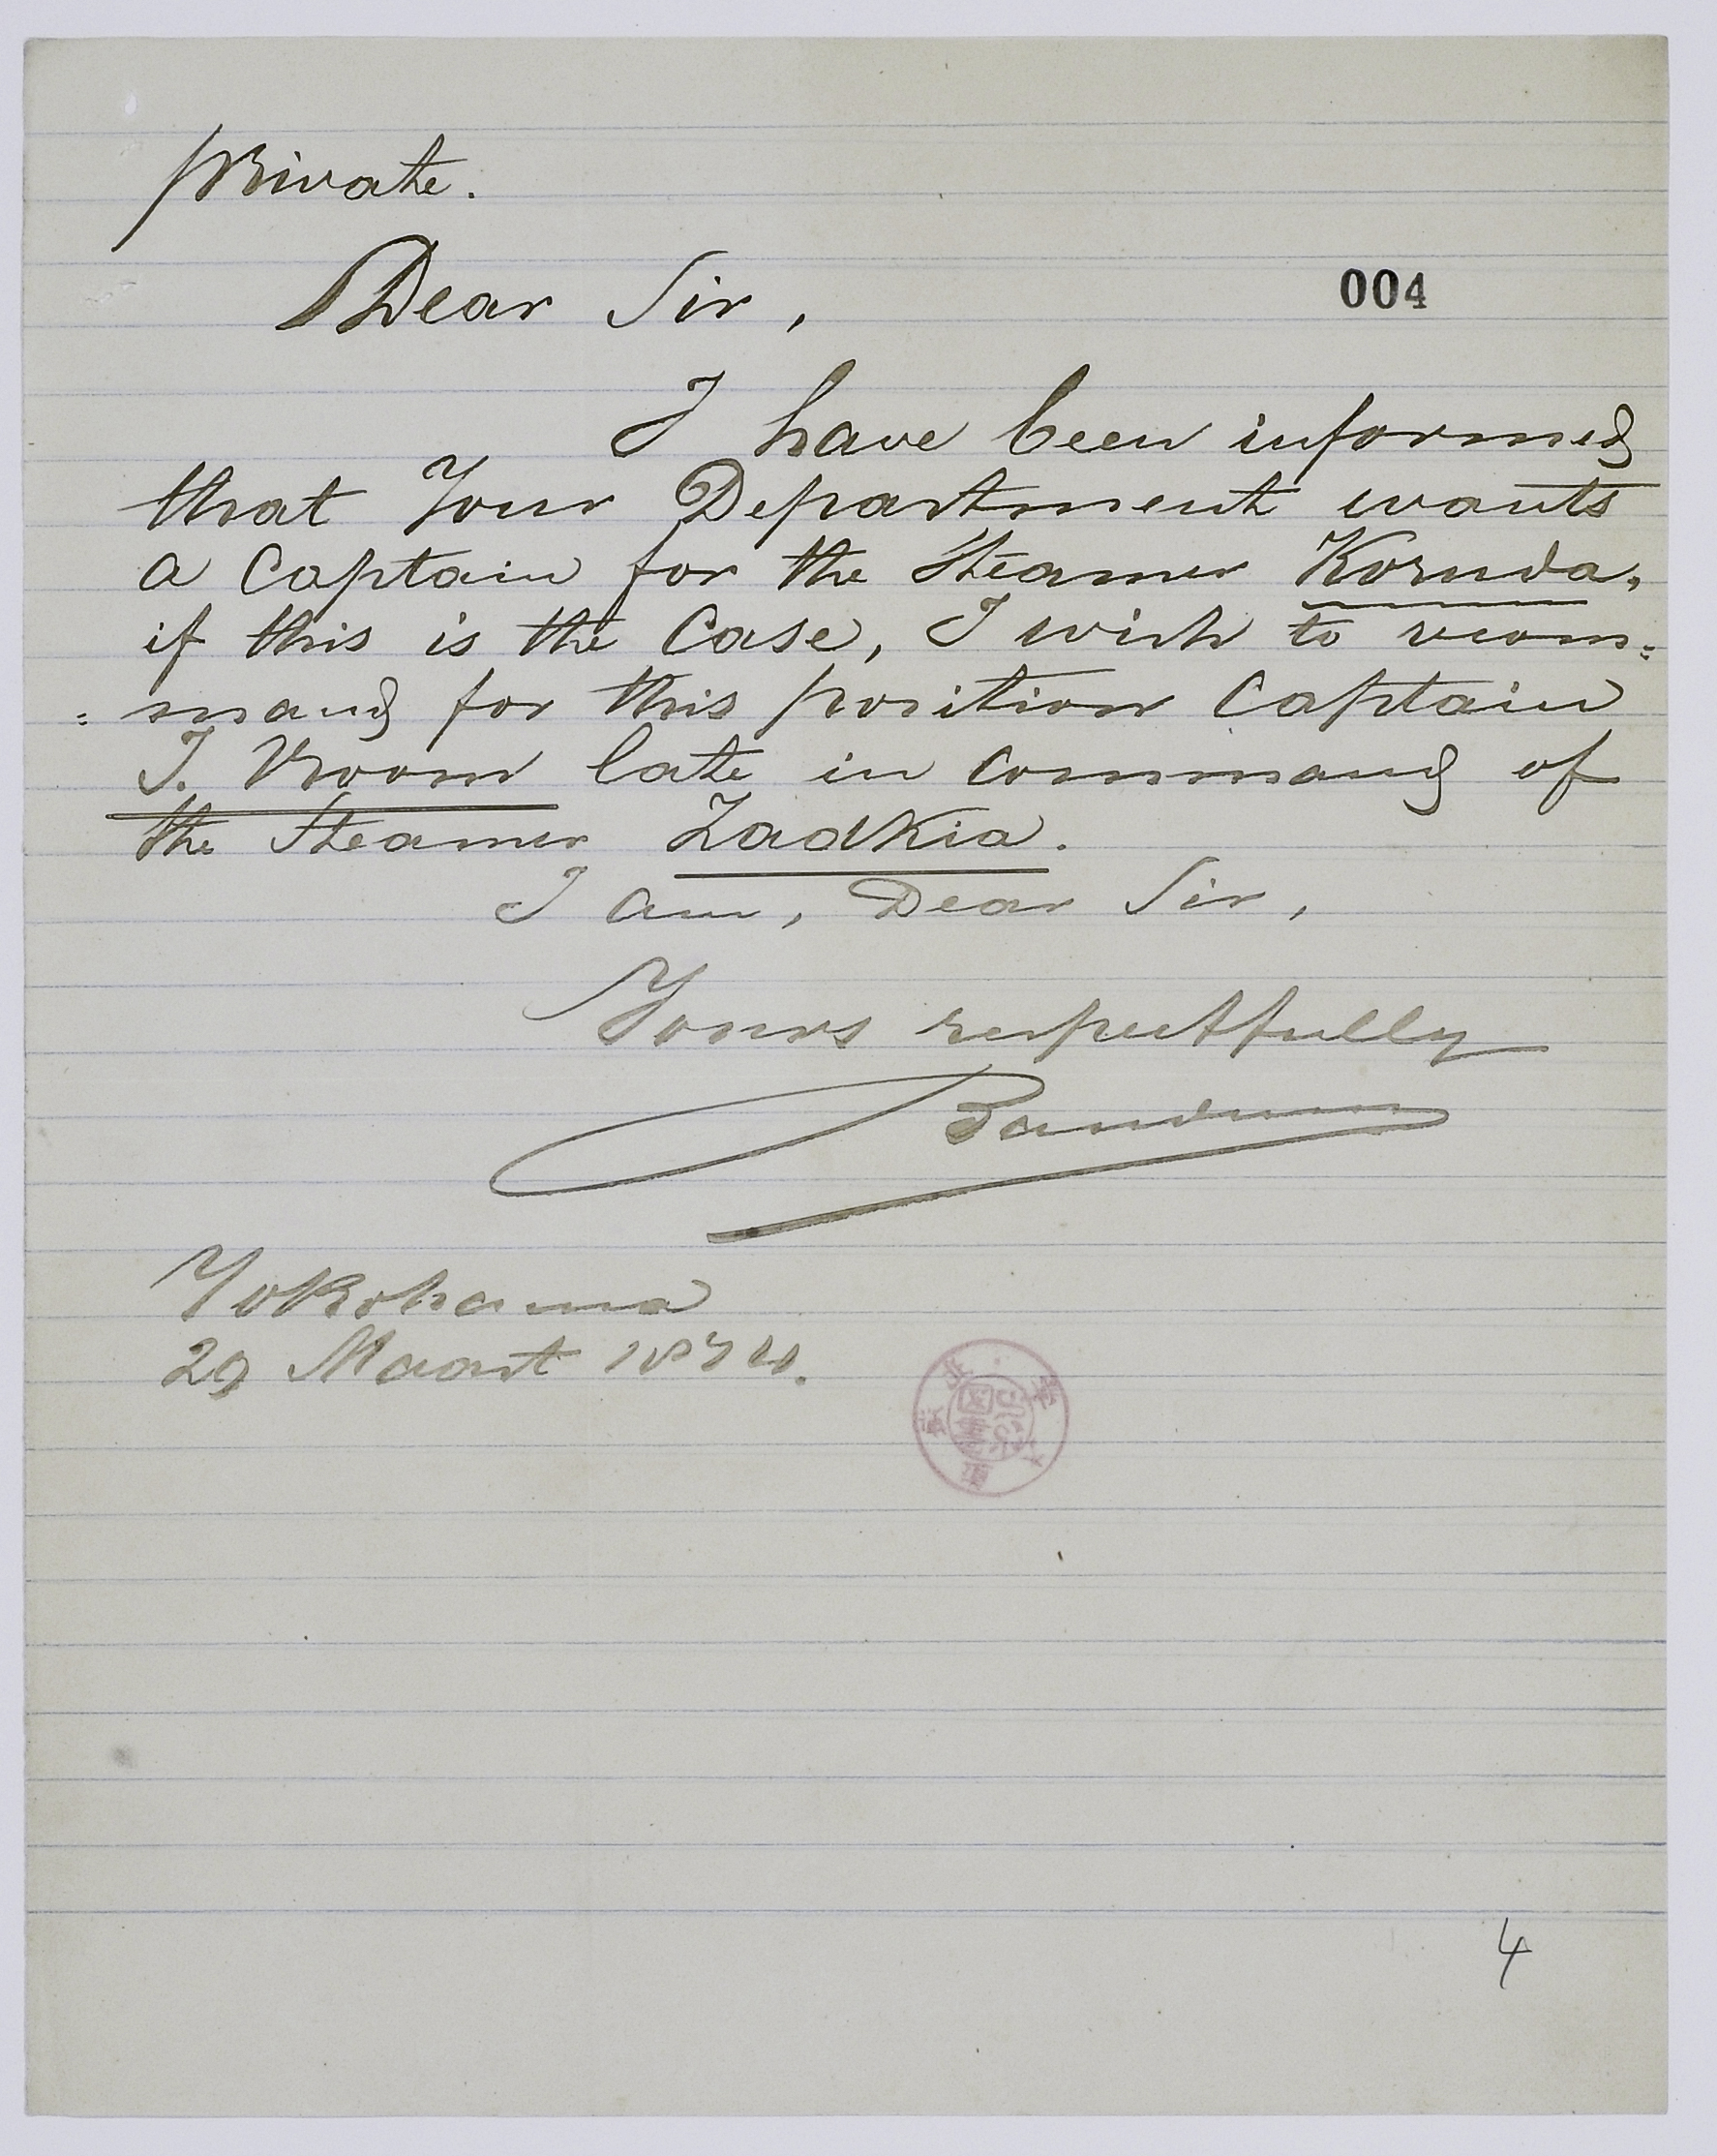 Private.
Dear Sir,
004
I have been informed
that Your Department wants
a Captain for the Steamer Koruda,
if this is the Case, I wish to recom=
=mand for this position Captain
J. Vroom late in command of
the Steamer Zadkia.
I am, Dear Sir,
Yours respectfully
Bauduin
Yokohama
29 Maart 1874.
4